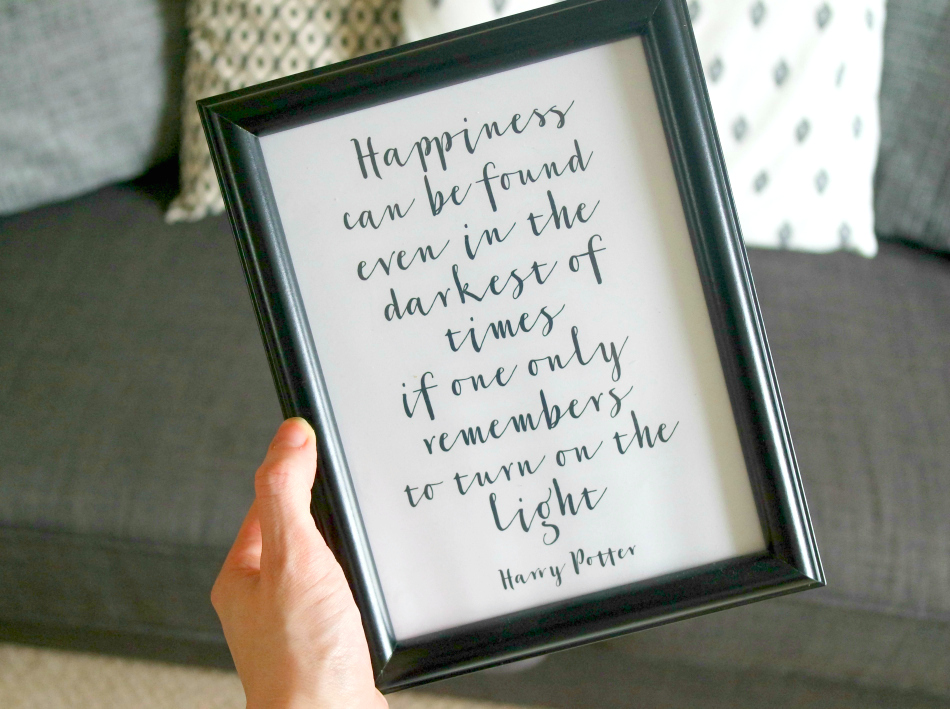 Happiness
can be found
even in the
darkest of
times
if one only
remembers
to turn on the
light
Harry Potter